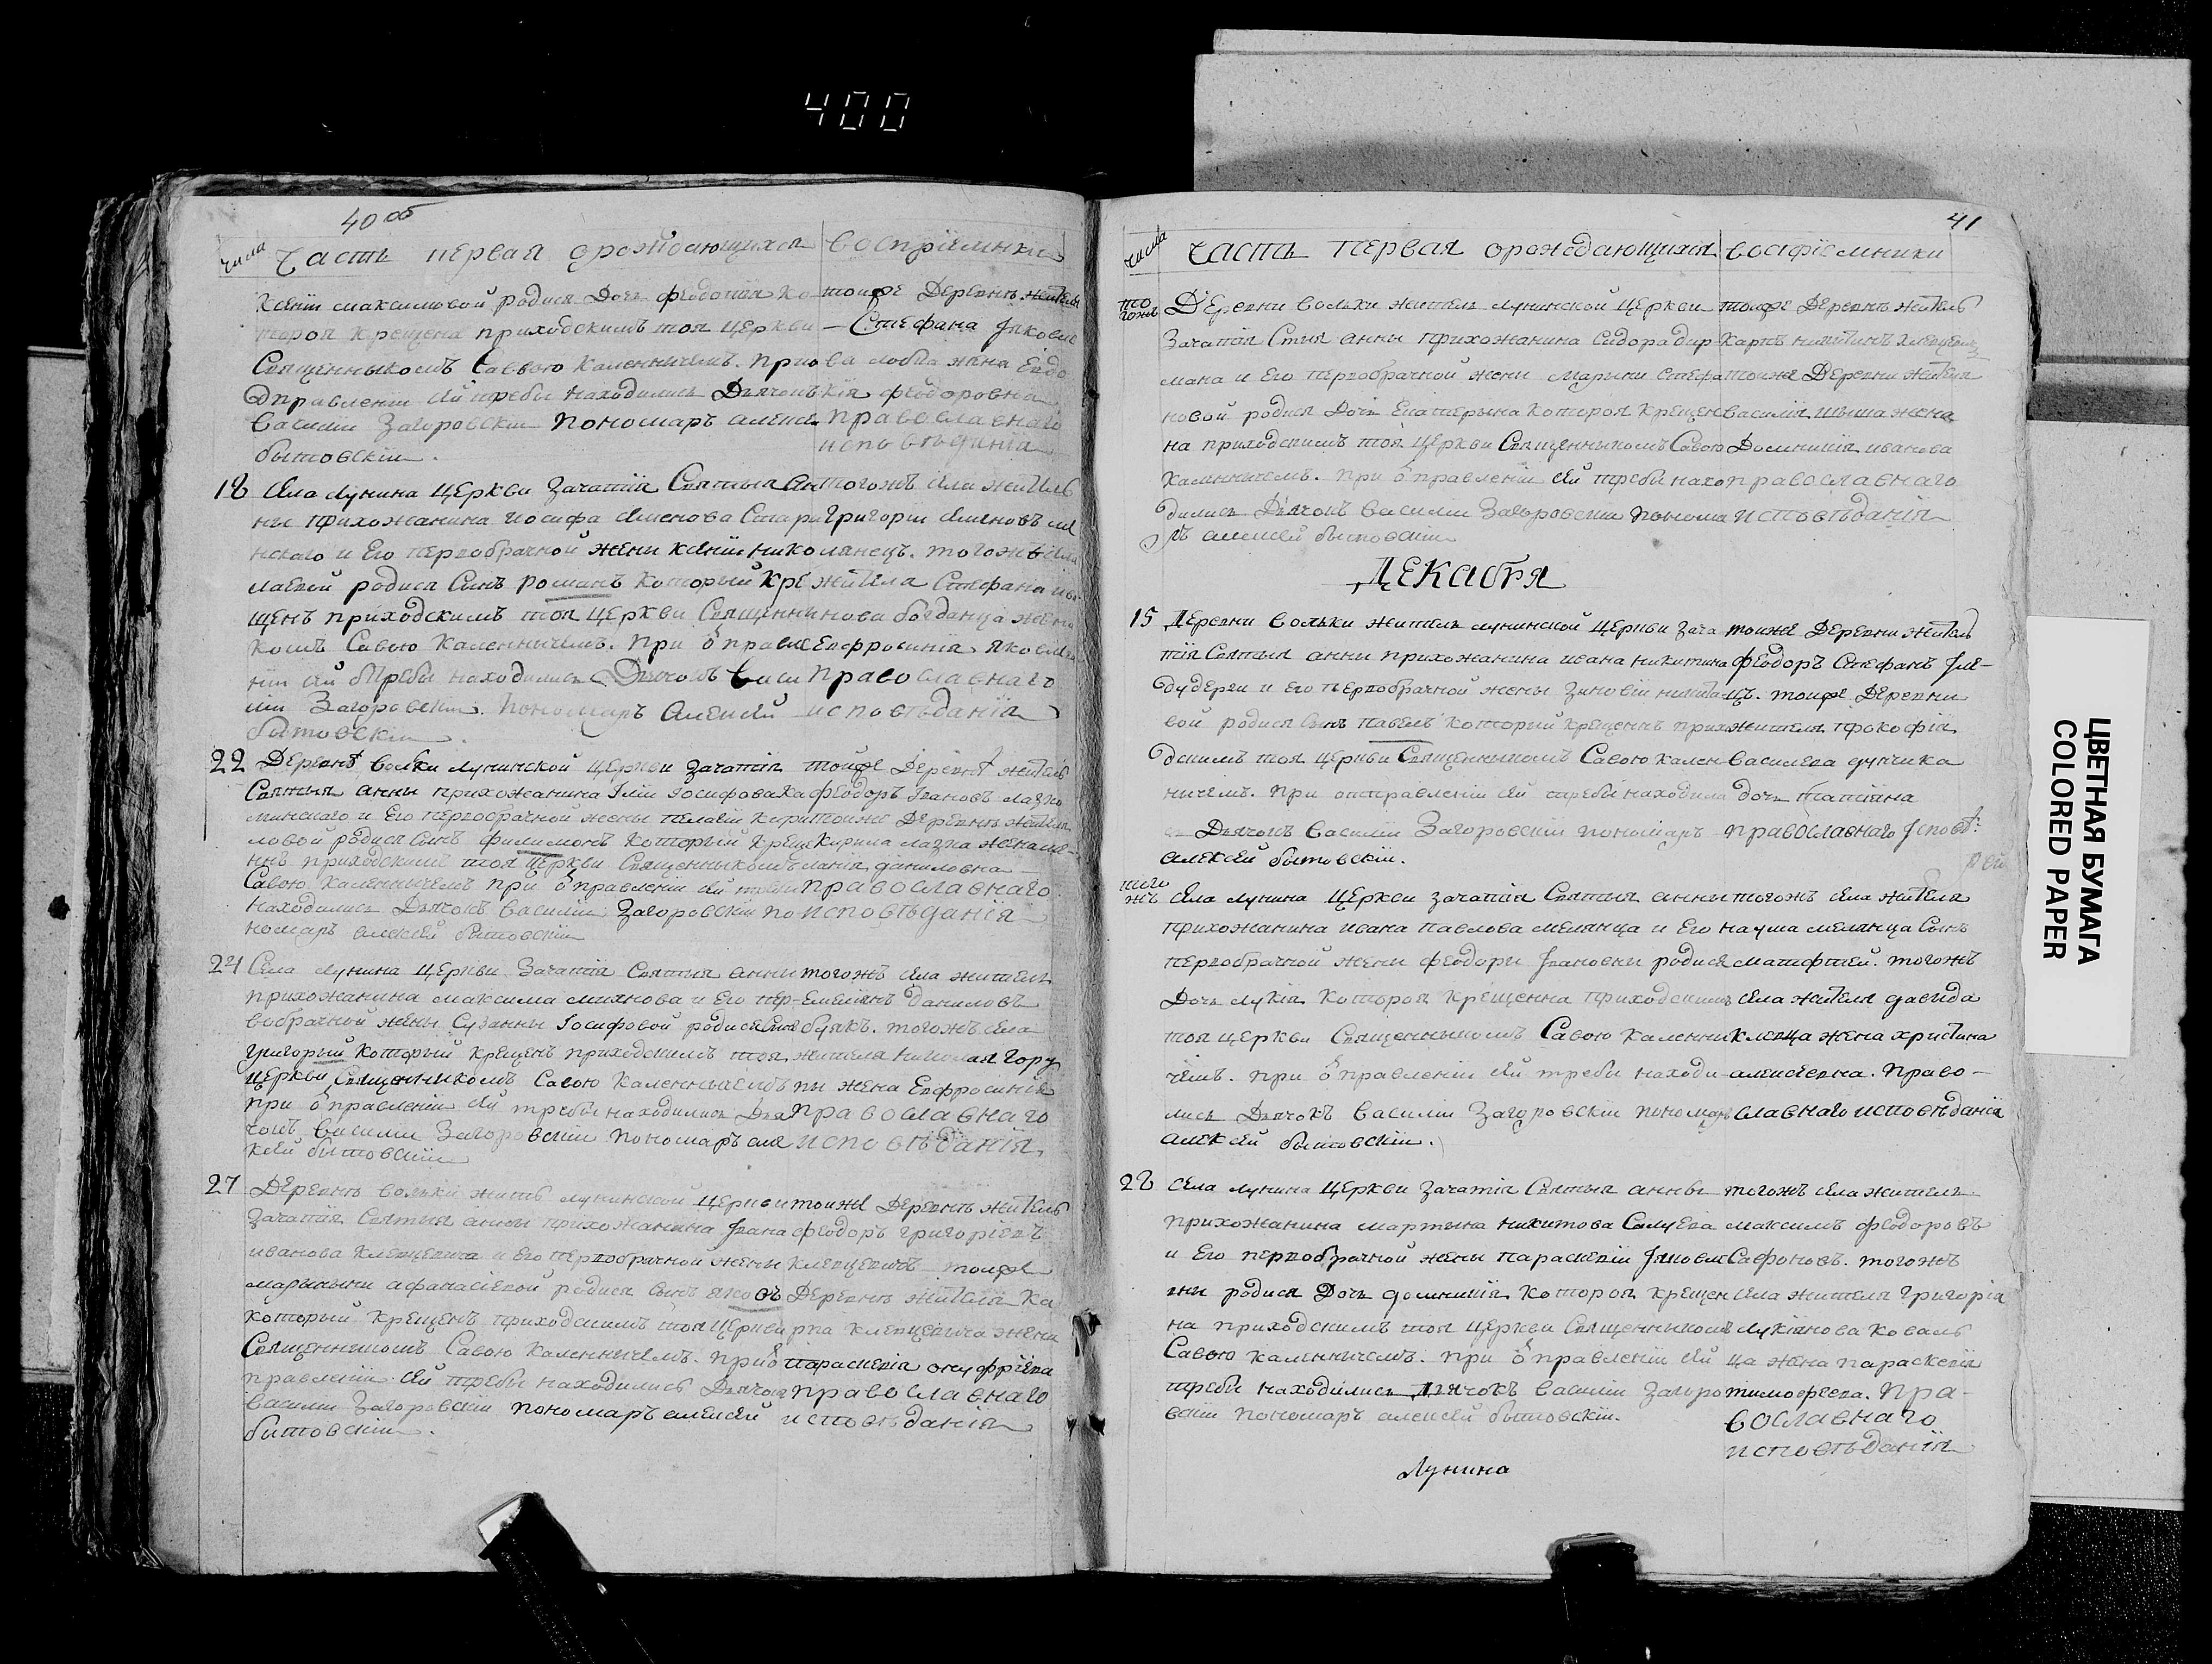 400
40 об
числа
Часть первая о рождающихся
восприемники
Ксении максимовой родися Дочь феодотiя ко-
торая крещена приходскимъ тоя церкви
Священникомъ Саввою Каленничемъ. при о
Отправленiи сей требы находились Дьячокъ
Василiи Загоровскiи Пономаръ алексе
бытовскiи.
тойже Деревнѣ жителя
Стефана Яковле
ва жена Евдо
кiя феодоровна
православнаго
исповѣданiя
18
Села Лунина Церкви Зачатiя Святыя Ан
ны прихожанина иосифа Семенова Стари
нскаго и Его первобрачной жени ксенiи нико
лаевой родися Сынъ романъ который кре
щенъ приходскимъ тоя Церкви Священни
комъ Савою Каленничемъ. При ѿправле
нiи сей требы находились Дьячокъ Васи
лiи Загоровскiи. Пономаръ Алексей
бытовскiи.
тогожъ села житель
григорiи Семеновъ
лянецъ. тогожъ села
жителя Стефана ива
нова богданца жена
Евфросинiя яковле
православнаго
исповѣданiя
22
Деревнѣ волки Лунинской Церкви Зачатiя
Святыя анны прихожанина Iлiи Iосифова Ка
минскаго и Его первобрачной жены пелагiи кири
ловой родися сынъ филимонъ который креще
ннъ приходскимъ тоя церкви Священникомъ
Савою Каленничемъ при ѿправленiи сей требы
находились Дьячокъ василiи Загоровскiи по
номаръ алексей бытовскiи
тойже Деревнѣ житель
феодоръ Iвановъ лазко
тоиже Деревнѣ жителя
Кирила лазка жена ме-
ланiя даниловна
православнаго
исповѣданiя
24
Села Лунина Церкви Зачатiя Святыя анны
прихожанина максима михнова и Его пер-
вобрачной жены Сузанны Iосифовой родися Сынъ
григорый который крещенъ приходскимъ тоя
церкви Священникомъ Савою Каленничемъ
при ѿправленiи сей требы находились Дья
чокъ василiи Загоровскiи пономаръ але
ксей бытовскiи
тогожъ села житель
Емелiянъ даниловъ
буякъ. тогожъ села
жителя николая гору
пы жена Евфросинiя
православнаго
исповѣданiя.
27
Деревнѣ волки житѣ лунинской церкви
Зачатiя Святыя анны прихожанина Iвана
иванова клевцевича и Его первобрачной жены
марьяны афанасiевой родися сынъ яковъ
который крещенъ приходскимъ тоя церкви
Священникомъ Савою Каленничемъ. при ѿ
правленiи сей требы находились Дьячокъ
василiи Загоровскiи пономаръ алексей
бытовскiи.
тоиже Деревнѣ житель
феодоръ григорiевъ
клевцевичъ тойже
Деревнѣ жителя Ка
рпа клевцевича жена
параскевiя онуфрiева
православнаго
исповѣданiя
41
числа
Часть первая о рождающихся
восприемники
того жъ
Деревни волки житель лунинской церкви
Зачатiя Стыя анны прихожанина Сидора дир
мана и Его первобрачной жени марыни стефа
новой родися Дочь Екатерына которая креще
на приходскимъ тоя церкви Священникомъ Савою
Каленничемъ. При ѿправленiи сей требы нахо
дились Дьячокъ василiи Загоровскiи понома
ръ алексей бытовскiи
тойже Деревнѣ житель
Карпъ никитинъ клевцевичъ
тоиже Деревни жителя
василiя шыша жена
Домникiя иванова
православнаго
исповѣданiя
Декабря
15
Деревни волки житель лунинской Церкви Зача
тiя Святыя анны прихожанина ивана никитина
дудерги и его первобрачной жены зиновiи никита-
вой родися сынъ павелъ который крещеннъ прихо
дскимъ тоя церкви Священникомъ Савою кален
ничемъ. При отправленiи сей требы находили
сь Дьячокъ василiи Загоровскiи пономаръ
алексей бытовскiи.
тоиже Деревни житель
феодоръ Стефанъ
цъ. тойже Деревни
жителя прокофiя
василева дунчика
дочь татiяна
православнаго Iсповѣ:
того жъ
села лунина Церкви зачатiя Святыя анны
прихожанина ивана павлова мелянца и Его
первобрачной жени феодори Iвановни родися
Дочь лукiя которая крещенна приходскимъ
тоя церкви Священникомъ Савою каленни
чемъ. при ѿправленiи сей требы находи-
лись Дьячокъ василiи Загоровскiи пономаръ
алексей бытовскiи.
тогожъ села жителя
наума мелянца Сынъ
матфтей. тогожъ
села жителя давида
клевца жена христина
алексiевна. право-
славнаго исповѣданiя
28
села лунина Церкви зачатiя Святыя анны
прихожанина мартына никитова Салуева
и Его первобрачной жены параскевiи Iяковле
вны родися Дочь домникiя которая крещен
на приходскимъ тоя церкви Священникомъ
Савою каленничемъ. при ѿправленiи сей
требы находились Дьячокъ василiи загоро
вскiи пономаръ алексей бытовскiи.
тогожъ села житель
максимъ феодоровъ
Сафоновъ. тогожъ
села жителя григорiя
лукiянова коваль
ца жена параскевiя
тимофеева. пра-
вославнаго
исповѣданiя
Лунина
ЦВЕТНАЯ БУМАГА
COLORED PAPER